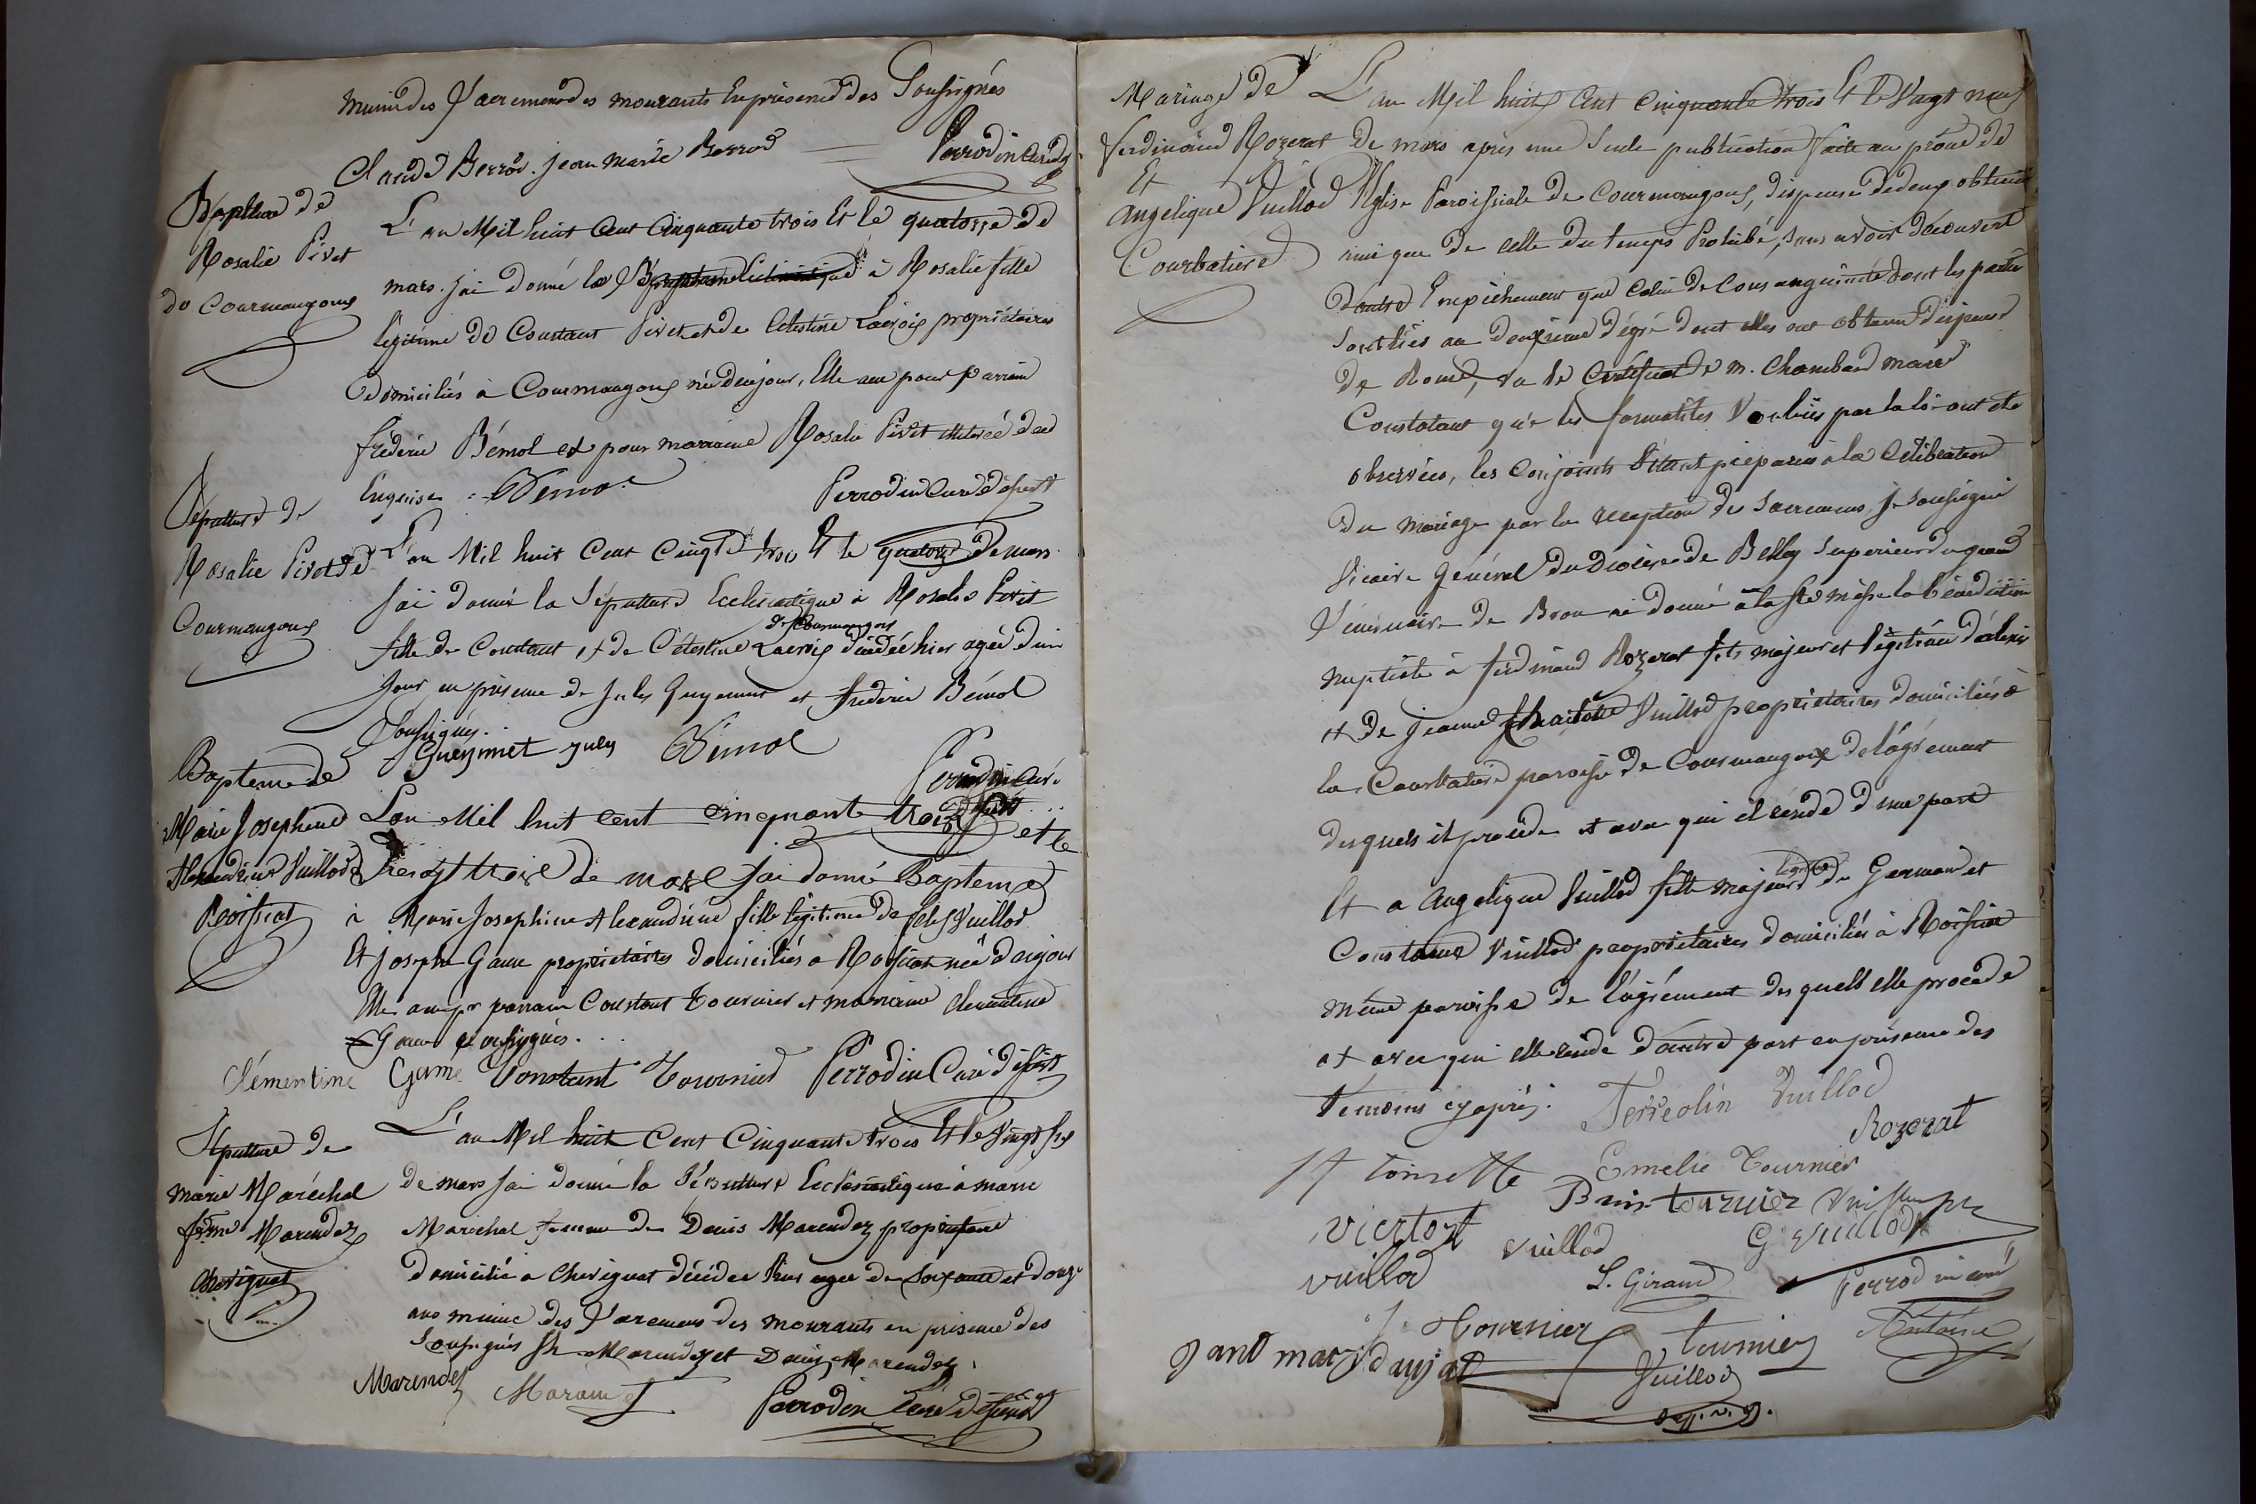 munie des Sacremens des mourants En présence des Soussignés
Claude Berrod. jean marie Berrod Perrodin Curé
Baptême de
Rosalie Pivet
de Courmangoux
L'an Mil huit Cent Cinquante trois Et le quatorze de
mars. jai donné le Baptême à Rosalie fille
légitime de Constant Pivet et de Célestine Lacroix propriétaires
domiciliés à Courmangoux née dece jour, Elle a eu pour parrain
fréderic Bémol et pour marraine Rosalie Pivet
Enquise. Bémol Perrodin Curé
Sépulture de
Rosalie Pivet de
Courmangoux
L'an Mil huit Cent Cinqte trois Et le quatorze de mars
jai donné la Sépulture Ecclésiastique à Rosalie Pivet
de Courmangoux
fille de Constant et de Célestine Lacroix décédée hier agée d'un
jour en présence de Jules Gueymet et frederic Bémol
Soussignés.
Gueymet july Bémol
Perrodin Curé
Bapteme de
Marie Josephine
Alexandrine Vuillod
Roissiat
L'an Mil huit cent cinquante trois et le
vingt trois de mars jai donné Bapteme
à Marie Josephine Alexandrine fille légitime de Vuillod
Et Joseph Game propriétaires domiciliés à Roissiat née d'aujour
Elle a eu pr parrain Constant Tournier et marraine Clementine
Game soussignés.
Clémentine Game Constant Tournier Perrodin Curé
Sépulture de
marie Maréchal
feme Marendez
Chevignat
L'an Mil huit Cent Cinquante trois Et le Vingt six
de mars jai donné la Sépulture Ecclésiastique à marie
Maréchal femme de Denis Marendez propriétaire
domicilié a Chevignat décédée hier agée de Soixante et douze
ans munie des Sacremens des mourants en présence des
Soussignés Marendez et Denis Marendez.
Marendez Marendez Perrodin Curé
Mariage de
ferdinand Rozerat
Et
Angelique Vuillod
Courbatiere
L'an Mil huit Cent Cinquante trois Et le Vingt neuf
De mars après une Seule publication faite au prône de
l'Eglise Paroissiale de Courmangoux, dispense de deux obtenue
ainsi que de celle du temps Prohibé, Sans avoir découvert
d'autre Empêchement que Celui de Consanguinité dont les parties
Sont liés au deuxième dégré dont elles ont obtenu dispense
de Rome, vu le Certificat de m. Chambard maire
Constatant que les formalités Voulues par la loi ont été
observées, les Conjoints S'étant préparés à la Célébration
du Mariage par la reception des Sacremens, je Soussigné
Vicaire Général du Diocèse de Belley Supérieur du grand
Séminaire de Brou ai donné à la Ste messe la bénédiction
nuptiale à ferdinand Rozerat fils majeur et légitime d'alexis
et de jeanne Vuillod propriétaires domiciliés à
la Courbatiere paroisse de Courmangoux de l'agrément
desquels il procède et avec qui il réside d'une part
légitime
Et a Angelique Vuillod fille majeure de Germain et
Constance Vuillod propriétaires domiciliés à Roissiat
même paroisse de l'agrément desquels elle procède
et avec qui elle réside d'autre part en présence des
témoins cy après. Ferreolin Vuillod
Rozerat
Emelie Tournier
tournier
victor Vuillod
G Vuillod
vuillod
L. Giraud
Perrodin curé
Tournier
tournier
Antoine
Vuillod
sup. v. g.